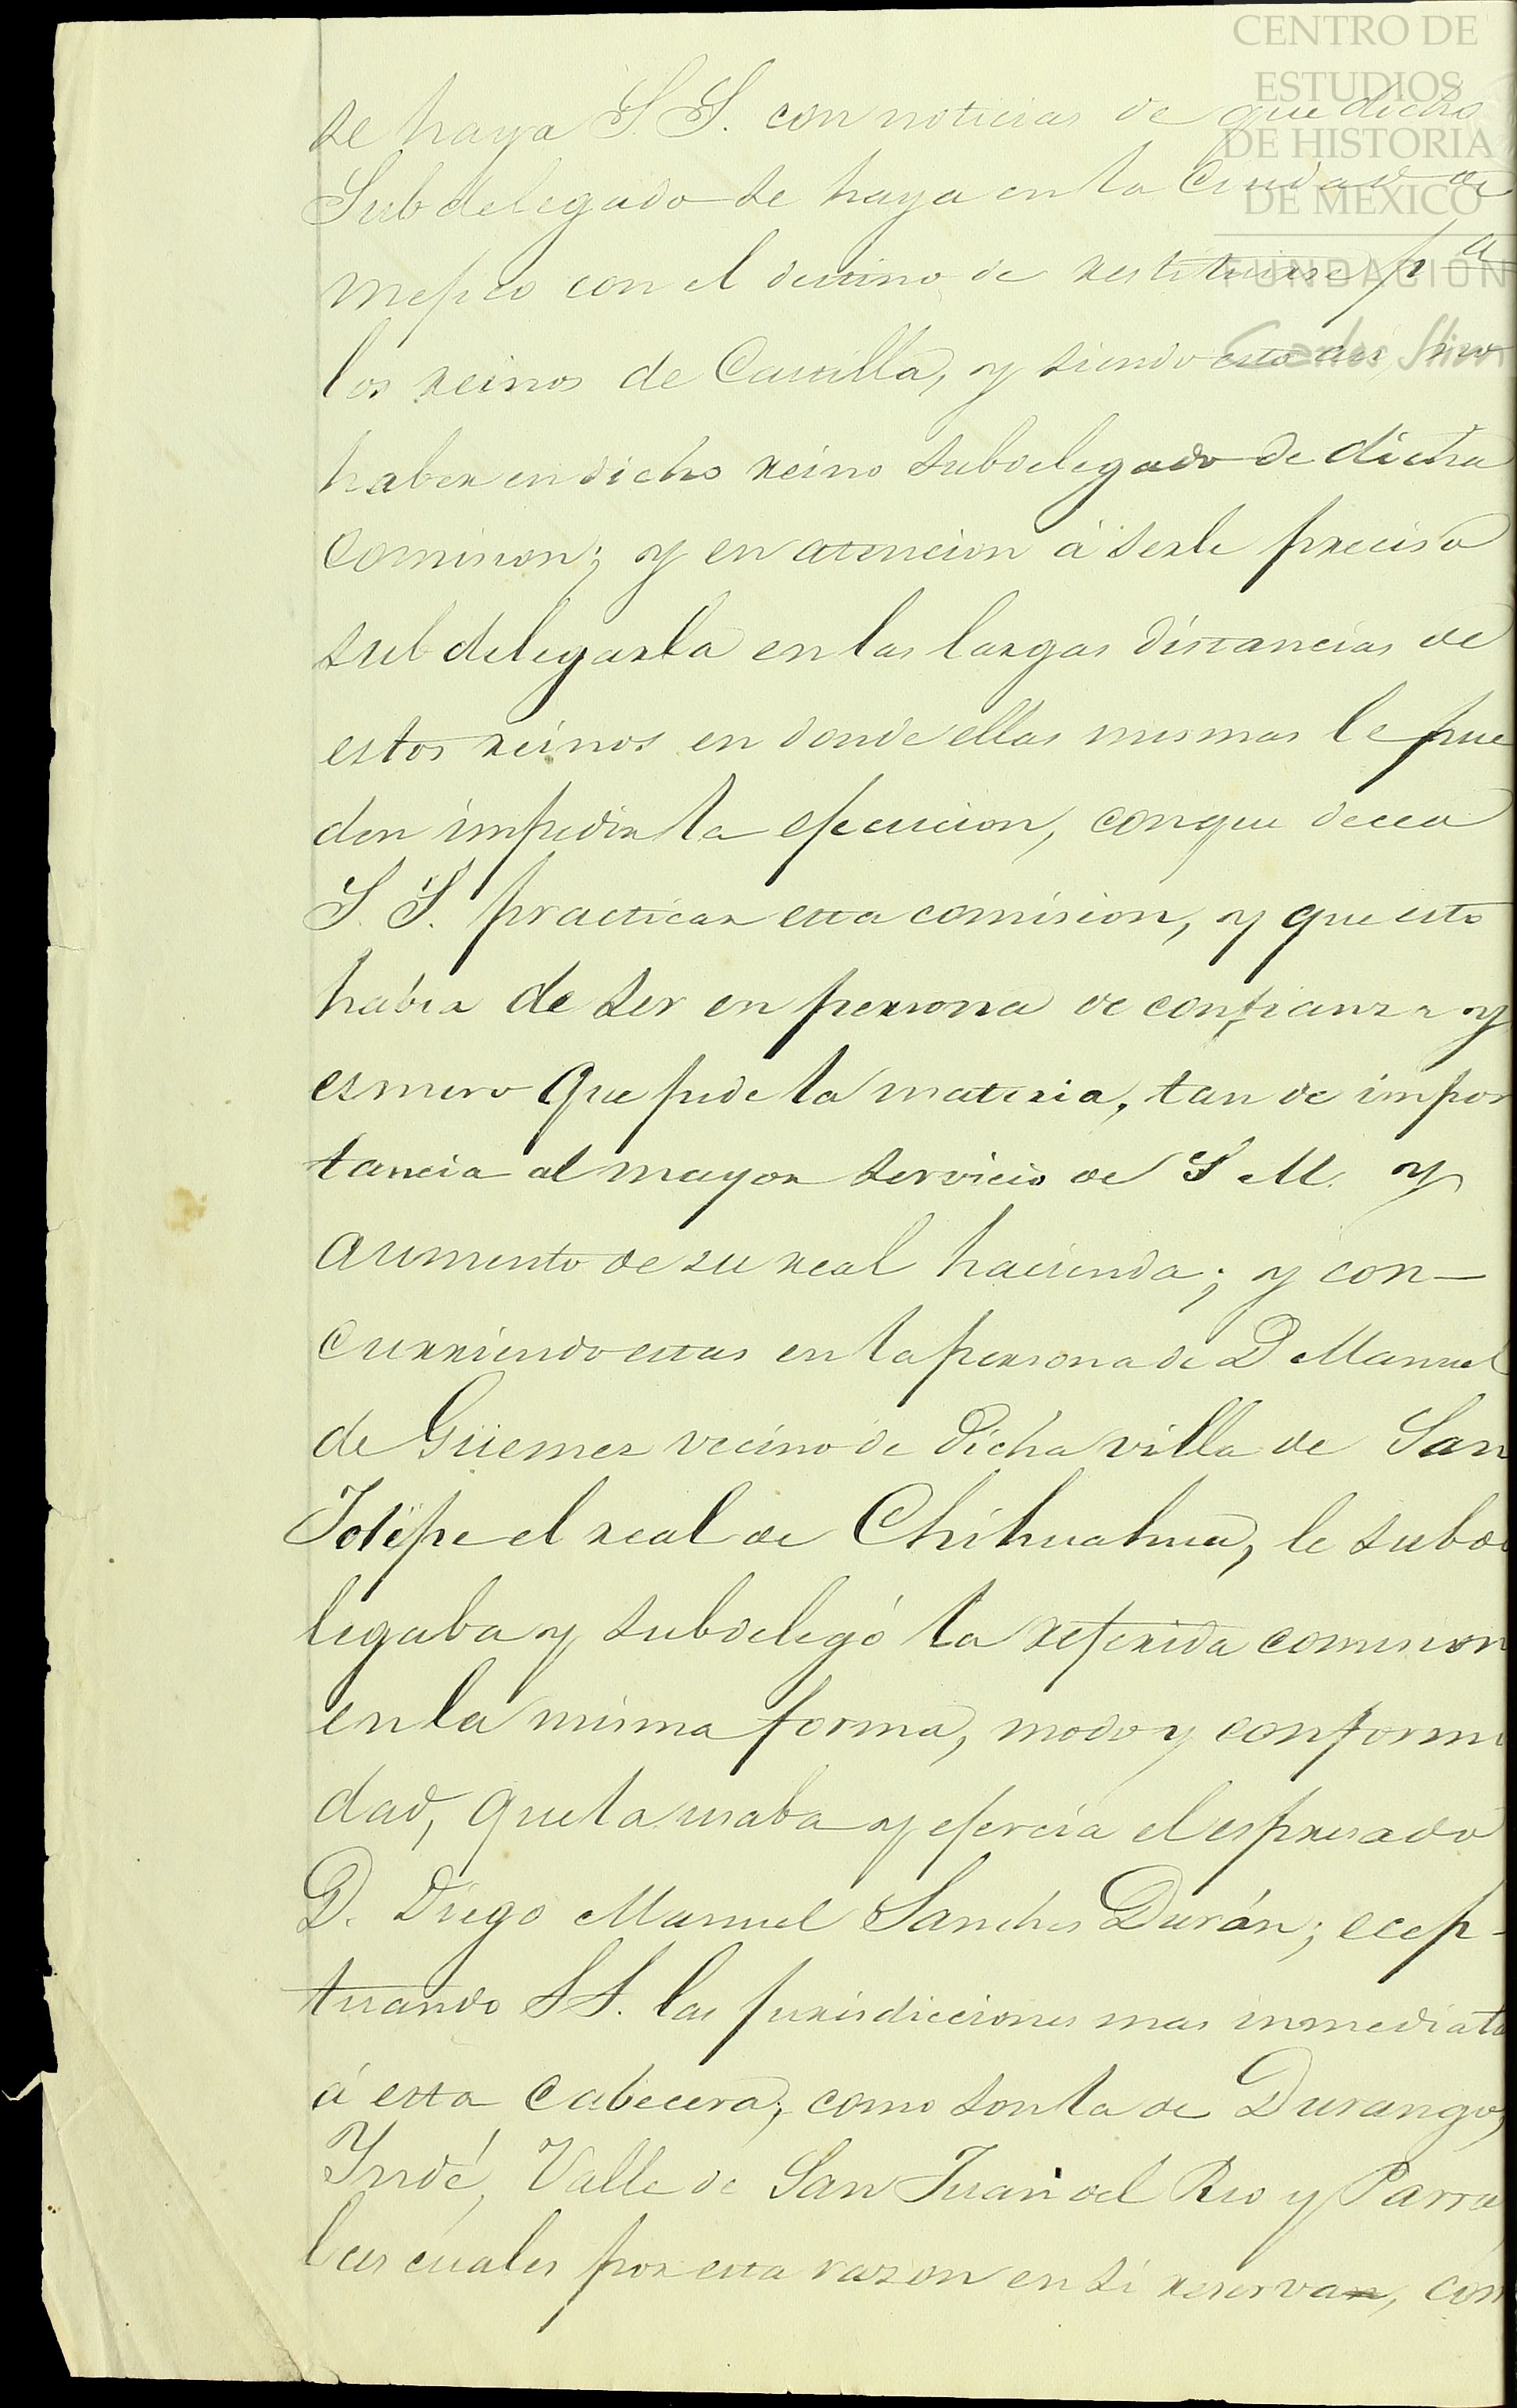 CENTRO DE
ESTUDIOS
DE HISTORIA
DE MEXICO
FUNDACIÓN
Carlos Slim
se haya S. S. con noticias de que dicho
Subdelegado se haya en la Ciudad de
Mejico con el destino de restituirse pa
los reinos de Castilla, y siendo esto asi, no
haber en dicho reino subdelegado de dicha
comision; y en atencion á serle preciso
subdelegarla en las largas distancias de
estos reinos en donde ellas mismas le pue
den impedir la ejecucion, con que decea
S. S. practicar esta comision, y que esto
habia de ser en persona de confianza y
esmero que pide la materia, tan de impor
tancia al mayor servicio de S M. y
aumento de su real hacienda; y con-
curriendo estas en la persona de D Manuel
de Güemes vecino de dicha villa de San
Josépe el real de Chihuahua, le subde
legaba y subdelegó la referida comision
en la misma forma, modo y conformi
dad, que la usaba y ejercia el espresado
D. Diego Manuel Sanches Durán; ecep-
tuando S S. las jurisdicciones mas inmediata
á esta cabecera, como son la de Durango,
Yndé, Valle de San Juan del Rio y Parra
las cuales por esta razon en sí reservan, con